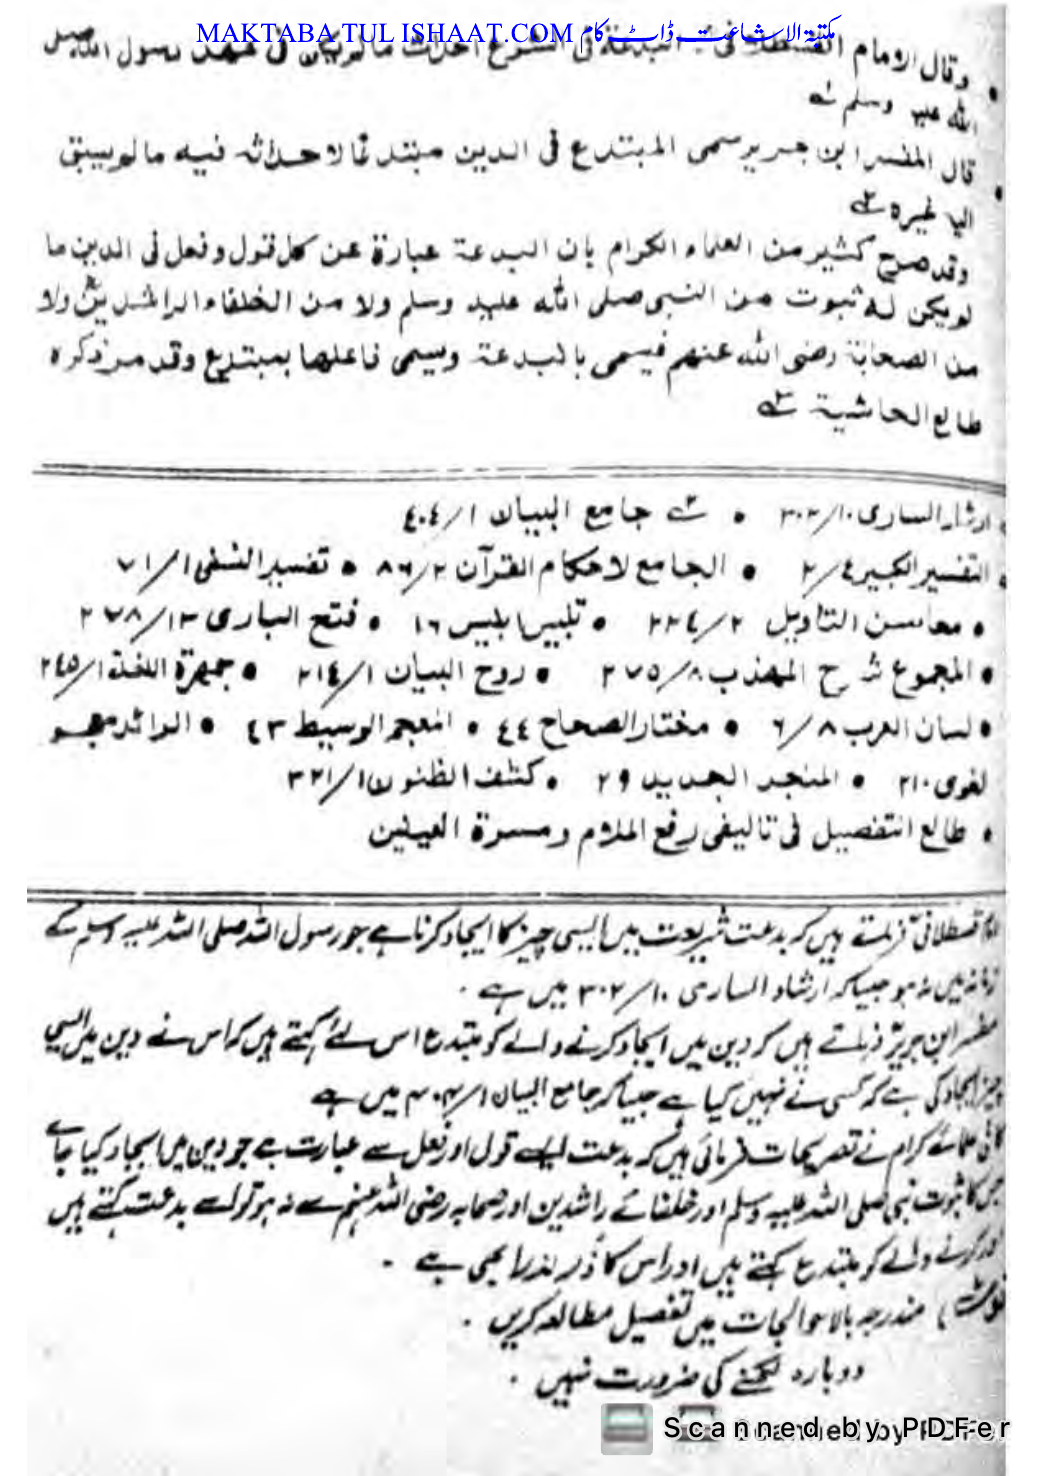 MAKTABA TUL ISHAAT.COM مکتبۃ الاشاعت ڈاٹ کام
وقال الامام فی البدعة فی الشرع احداث مالم یکن فی عهد رسول الله صلی
الله علیه وسلم
قال المفسر ابن جریر سمی المبتدع فی الدین مبتدعًا لاحداثه فیه مالم یسبق
الیه غیره
وقد صرح کثیر من العلماء الکرام بان البدعة عبارة عن کل قول وفعل فی الدین ما
لم یکن له ثبوت من النبی صلی الله علیه وسلم ولا من الخلفاء الراشدین ولا
من الصحابة رضی الله عنهم فیسمی بالبدعة ویسمی فاعلها بمبتدع وقد مر ذکره
طالع الحاشیة
ارشاد الساری ۳۰۲/۱۰ • جامع البیان ۴۰۴/۱
التفسیر الکبیر ۲/۴ • الجامع لاحکام القرآن ۸۶/۲ • تفسیر النسفی ۷۱/۱
• محاسن التاویل ۲۳٤/۲ • تلبیس ابلیس ۱۶ • فتح الباری ۲۷۸/۱۳
• المجموع شرح المهذب ۲۷۵/۸ • روح البیان ۲۱٤/۱ • جمهرة اللغة ۲٤۵/۱
• لسان العرب ۶/۸ • مختار الصحاح ٤٤ • المعجم الوسیط ٤۳ • الرائد معجم
لغوی ۲۱۰ • المنجد الجدید ۲۹ • کشف الظنون ۳۲۱/۱
• طالع التفصیل فی تالیفی رفع الملام ومسرة العینین
امام قسطلانی فرماتے ہیں کہ بدعت شریعت میں ایسی چیز کا ایجاد کرنا ہے جو رسول اللہ صلی اللہ علیہ وسلم کے
زمانہ میں نہ ہو جیسا کہ ارشاد الساری ۳۰۲/۱۰ میں ہے۔
مفسر ابن جریر فرماتے ہیں کہ دین میں ایجاد کرنے والے کو مبتدع اس لئے کہتے ہیں کہ اس نے دین میں ایسی
چیز ایجاد کی ہے کہ کسی نے نہیں کیا ہے جیسا کہ جامع البیان ۴۰۴/۱ میں ہے
کافی علمائے کرام نے تصریحات فرمائی ہیں کہ بدعت ایسے قول اور فعل سے عبارت ہے جو دین میں ایجاد کیا جائے
جس کا ثبوت نبی صلی اللہ علیہ وسلم اور خلفائے راشدین اور صحابہ رضی اللہ عنہم سے نہ ہو تو اسے بدعت کہتے ہیں
اور کرنے والے کو مبتدع کہتے ہیں اور اس کا ذکر گذرا بھی ہے۔
نوٹ، مندرجہ بالا حوالجات میں تفصیل مطالعہ کریں۔
دوبارہ لکھنے کی ضرورت نہیں۔
Scanned by PDFer